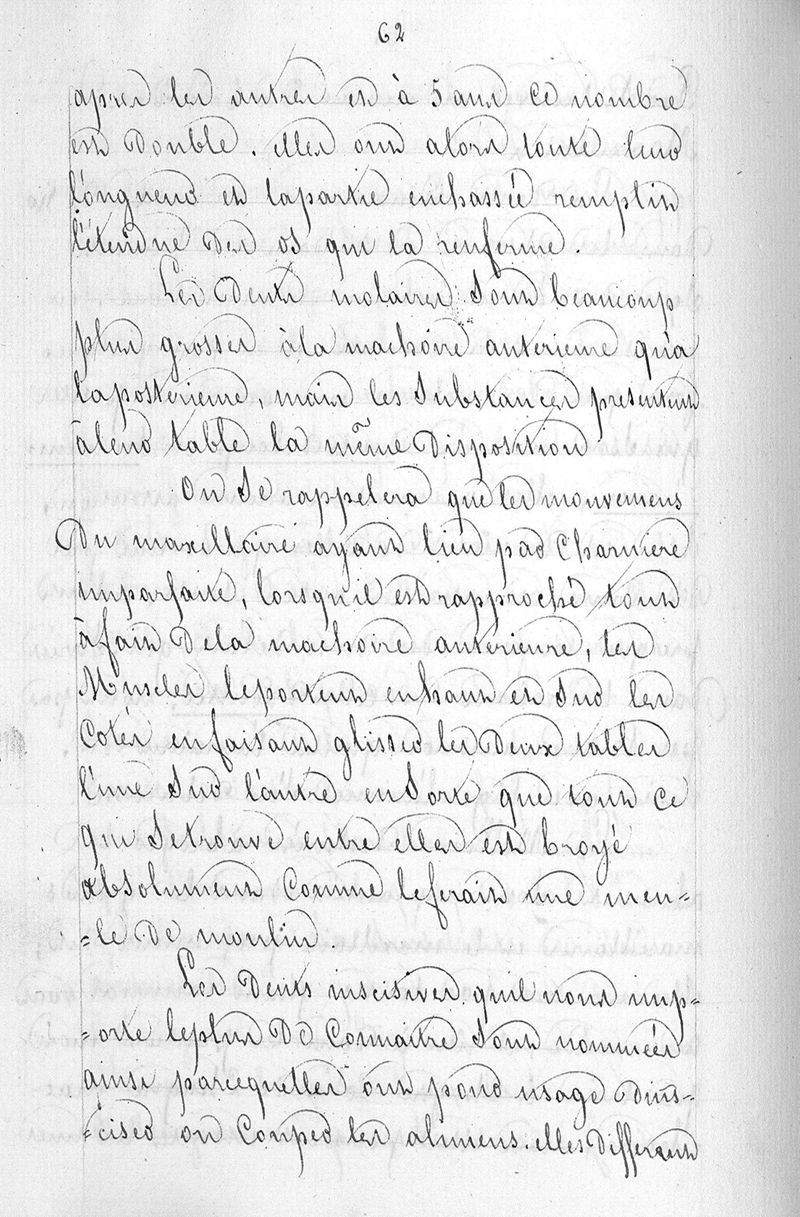 62
apres les autres et à 5 ans ce nombre
est double. elles ont alors toute leur
longueur et la partie enchassée remplit
l'étendue des os qui la renferme.
Les Dents molaires sont beaucoup
plus grosses à la machoire anterieure qu'a
la posterieure, mais les substances presentent
à leur table la même disposition
On se rappelera que les mouvemens
Du maxillaire ayant lieu par charniere
imparfaite, lorsqu'il est rapproché tout
à fait de la machoire anterieure, les
Muscles le portent en haut et sur les
cotés en faisant glisser les deux tables
l'une sur l'autre en sorte que tout ce
qui se trouve entre elles est broyé
absolument comme le ferait une meu-
-le de moulin.
Les Dents inscisives qu'il nous imp-
-orte le plus De Connaitre sont nommées
ainsi parcequ'elles ont pour usage d'ins-
-ciser ou couper les alimens. elles different